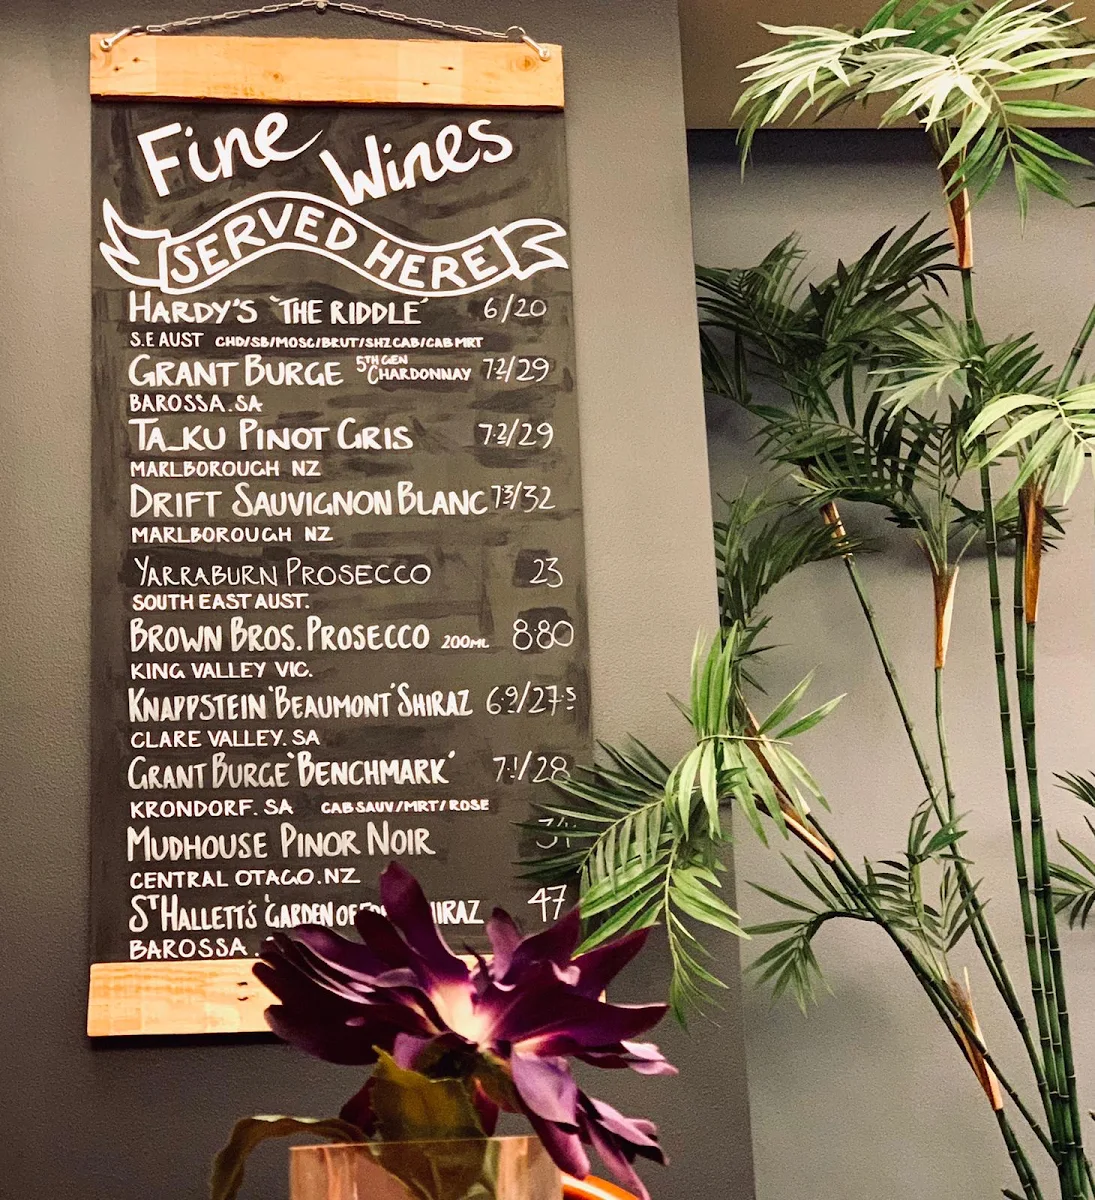 Fine Wines
SERVED HERE
HARDY'S 'THE RIDDLE' 6/20
S.E AUST CHD/SB/MOSC/BRUT/SHZCAB/CAB MRT
GRANT BURGE 5TH GEN CHARDONNAY 7.2/29
BAROSSA.SA
TA_KU PINOT GRIS 7.2/29
MARLBOROUGH NZ
DRIFT SAUVIGNON BLANC 7.3/32
MARLBOROUGH NZ
YARRABURN PROSECCO 23
SOUTH EAST AUST.
BROWN BROS. PROSECCO 200ML 8.80
KING VALLEY VIC.
KNAPPSTEIN 'BEAUMONT' SHIRAZ 6.9/27.5
CLARE VALLEY. SA
GRANT BURGE 'BENCHMARK' 7.1/28
KRONDORF. SA CAB SAUV/MRT/ROSE
MUDHOUSE PINOR NOIR
CENTRAL OTAGO.NZ
ST HALLETT'S 'GARDEN OF 47
BAROSSA.